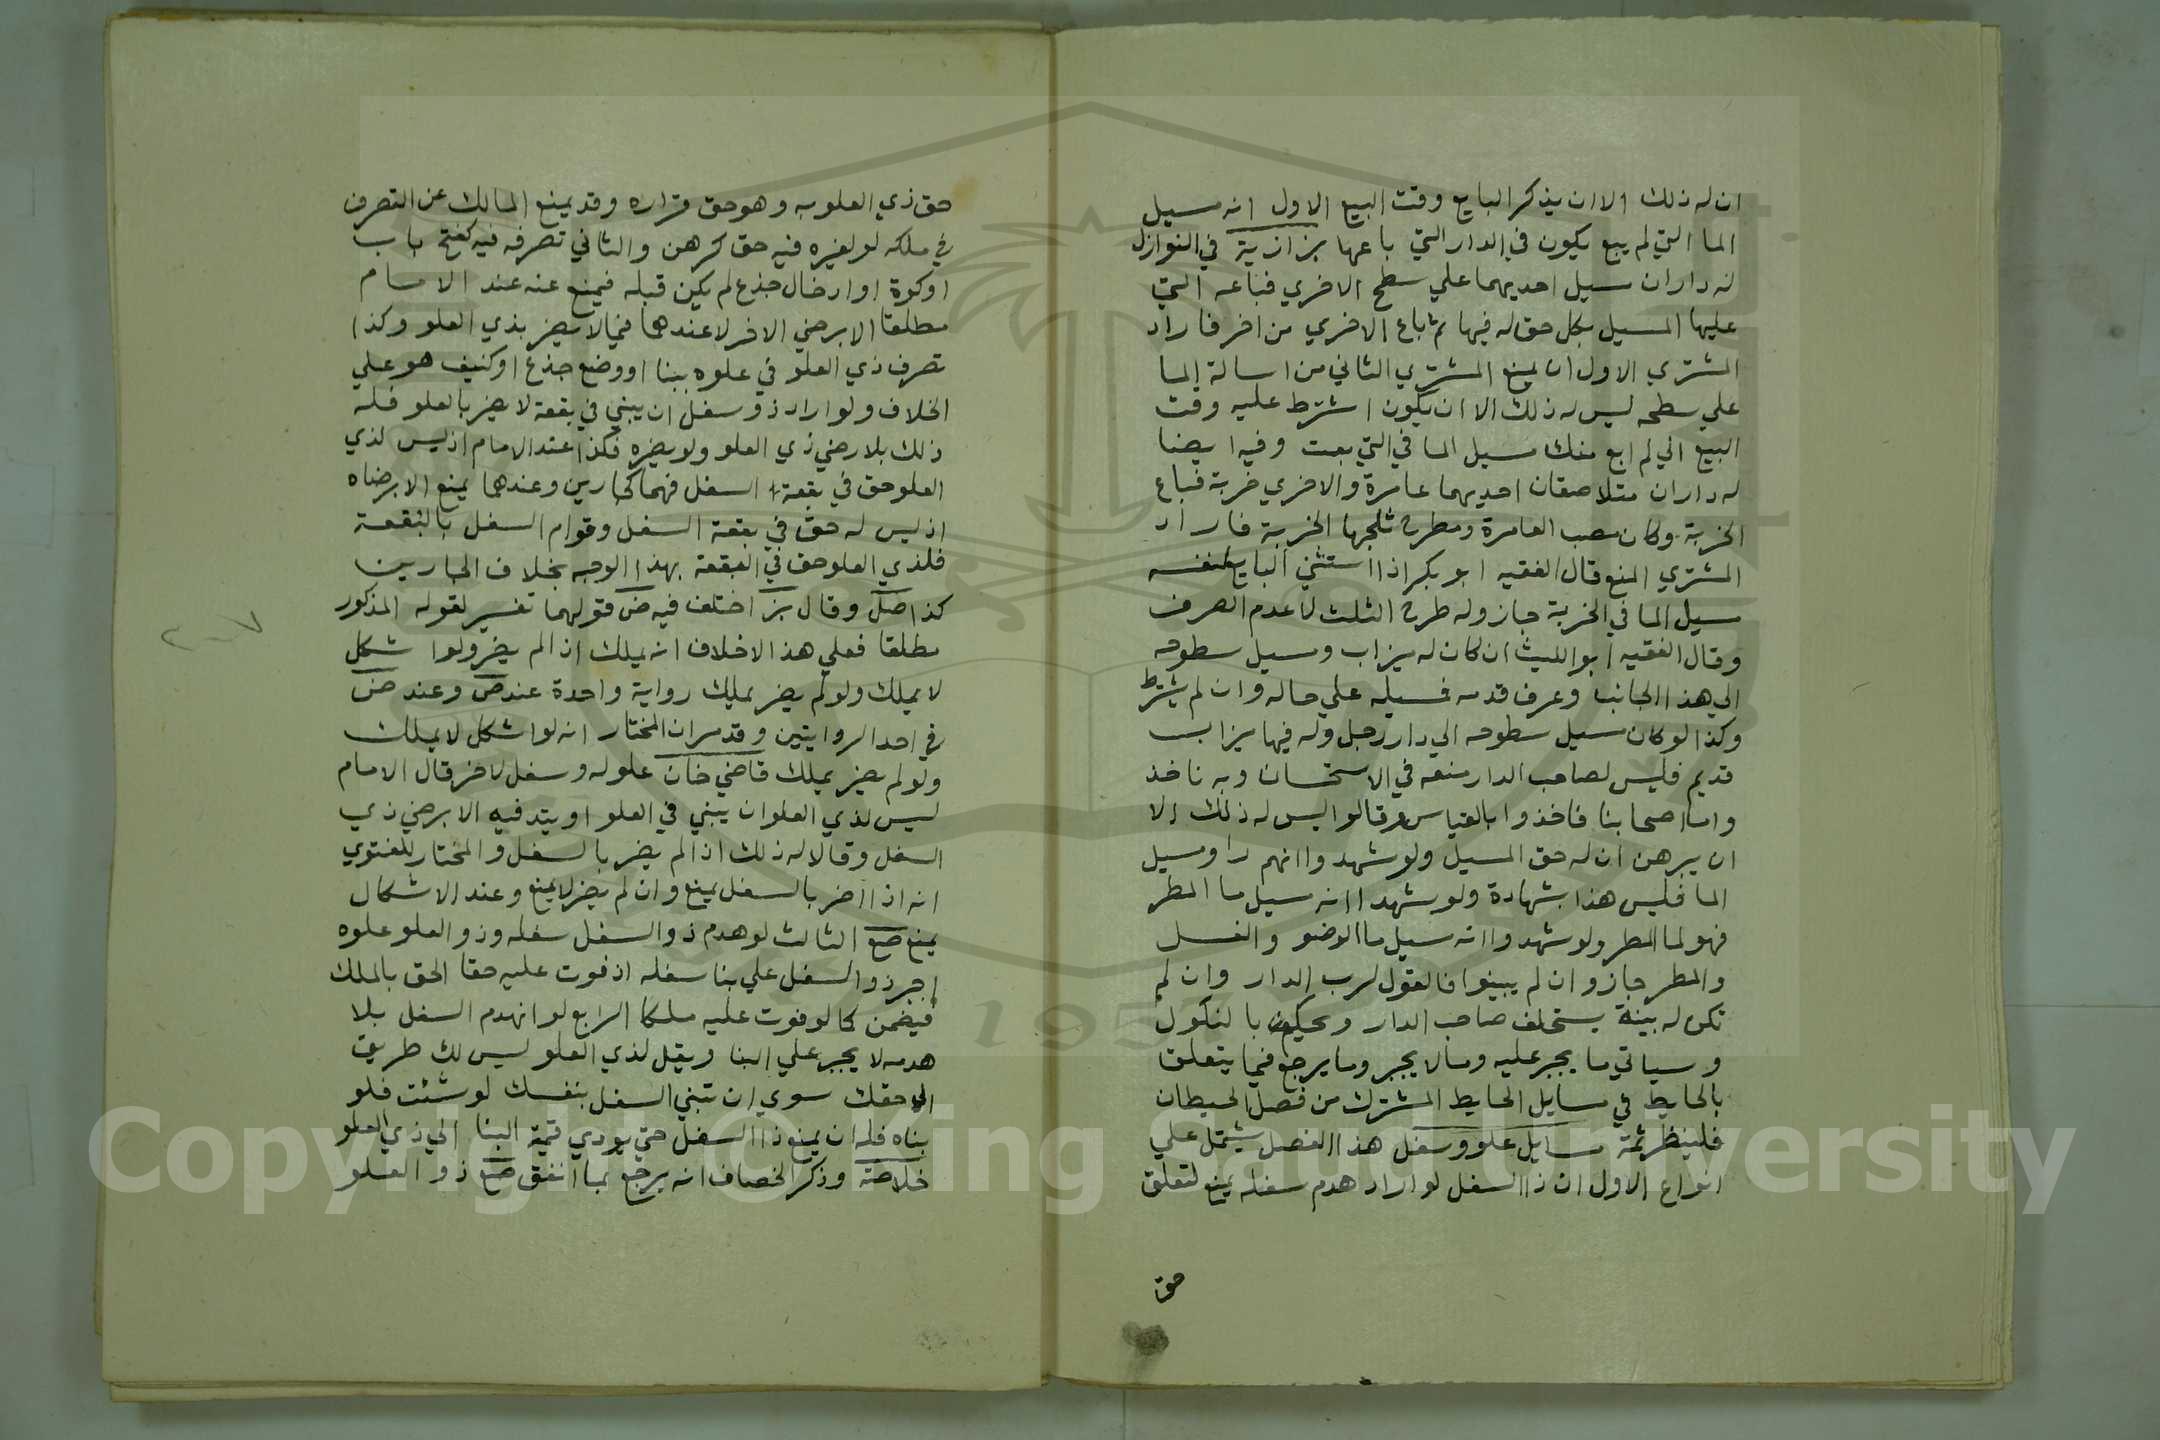 ان له ذلك الا ان يذكر البايع وقت البيع الاول انه مسيل
الما التي لم يبع يكون في الدار التي باعها بزازية في النوازل
له داران مسيل احديهما علي سطح الاخري فباعه التي
عليها المسيل بكل حق له فيها ثم باع الاخري من اخر فاراد
المشتري الاول ان يمنع المشتري الثاني من اسالة الما
علي سطحه ليس له ذلك الا ان يكون اشترط عليه وقت
البيع اني لم ابع منك مسيل الما في التي بعت وفيه ايضا
له داران متلاصقان احديهما عامرة والاخري خربة فباع
الخربة وكان مصب العامرة ومطرح ثلجها الخربة فاراد
المشتري المنع قال الفقيه ابو بكر اذا استثني البايع لنفسه
مسيل الما في الخربة جاز وله طرح الثلث لا عدم الصرف
وقال الفقيه ابو الليث ان كان له ميزاب ومسيل سطوحه
الي هذا الجانب وعرف قدمه فسيله علي حاله وان لم يشترط
وكذا لو كان مسيل سطوحه الي دار رجل وله فيها ميزاب
قديم فليس لصاحب الدار منعه في الاستحسان وبه ناخذ
واما اصحابنا فاخذوا بالقياس وقالوا ليس له ذلك الا
ان يبرهن ان له حق المسيل ولو شهدوا انهم راوا مسيل
الما فليس هذا بشهادة ولو شهدا انه مسيل ما المطر
فهو لما المطر ولو شهدوا انه سيل ما الوضو والغسل
والمطر جاز وان لم يبينوا فالقول لرب الدار وان لم
تكن له بينة يستحلف صاحب الدار ويحكم بالنكول
وسياتي ما يجبر عليه وما لا يجبر وما يرجع فيما يتعلق
بالحايط في مسايل الحايط المشترك من فصل الحيطان
فلينظر ثمة مسايل علو وسفل هذا الفصل يشتمل علي
انواع الاول ان ذا السفل لو اراد هدم سفله يمنع لتعلق
حق
حق ذي العلو به وهو حق قراره وقد يمنع المالك عن التصرف
في ملكه لو لغيره فيه حق كرهن والثاني تصرفه فيه كفتح باب
او كوة او ادخال جذع لم يكن قبله فيمنع عنه عند الامام
مطلقا الا برضي الاخر لا عندهما فيما لا يضر بذي العلو وكذا
تصرف ذي العلو في علوه ببنا او وضع جذع او كنيف هو علي
الخلاف ولو اراد ذو سفل ان يبني في بقعة لا يضر بالعلو فله
ذلك بلا رضي ذي العلو ولو يضره فكذا عند الامام اذ ليس لذي
العلو حق في بقعة السفل فهما كجارين وعندهما يمنع الا برضاه
اذ ليس له حق في بقعة السفل وقوام السفل بالبقعة
فلذي العلو حق في البقعة بهذا الوجه بخلاف الجارين
كذا صل وقال بز اختلف فيه ض قولهما تفسير لقوله المذكور
مطلقا فعلي هذا الاختلاف انه يملك اذا لم يضر ولو اشكل
لا يملك ولو لم يضر يملك رواية واحدة عند ض وعند ض
في احد الروايتين وقد مر ان المختار انه لو اشكل لا يملك
ولو لم يضر يملك قاضي خان علو له وسفل لاخر قال الامام
ليس لذي العلو ان يبني في العلو او يتد فيه الا برضي ذي
السفل وقالا له ذلك اذا لم يضر بالسفل والمختار للفتوي
انه اذا اضر بالسفل يمنع وان لم يضر لا يمنع وعند الاشكال
يمنع صع الثالث لو هدم ذو السفل سفله وذو العلو علوه
اجبر ذو السفل علي بنا سفله اذ فوت عليه حقا الحق بالملك
فيضمن كما لو فوت عليه ملكا الرابع لو انهدم السفل بلا
هدمه لا يجبر علي البنا ويقل لذي العلو ليس لك طريق
الي حقك سوي ان تبني السفل بنفسك لو شئت فلو
بناه فله ان يمنع ذا السفل حتي يودي قيمة البنا الي ذي العلو
خلاصة وذكر الخصاف انه يرجع بما انفق صع ذو العلو
Copyright © King Saud University
1957